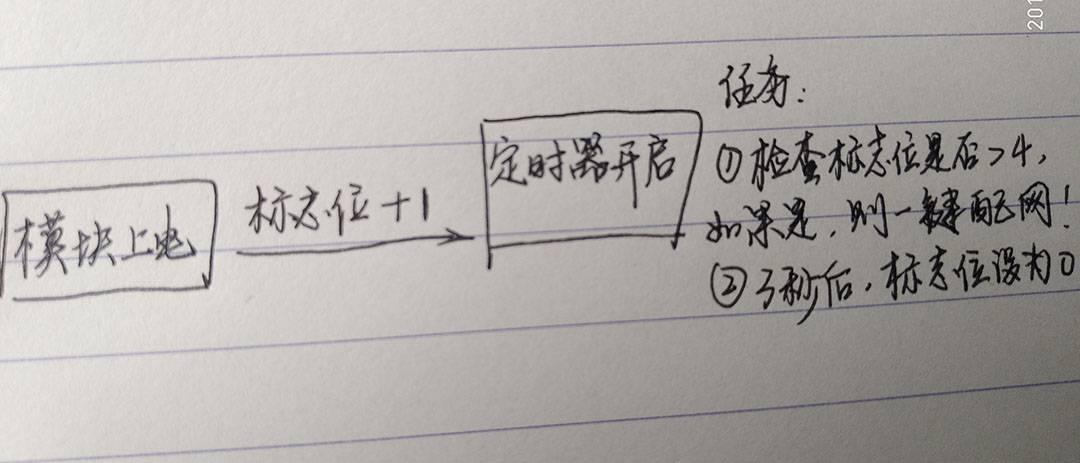 任务:
定时器开启
①检查标志位是否>4,
标志位+1
如果是,则一键配网!
模块上电
②3秒后,标志位设为0
201